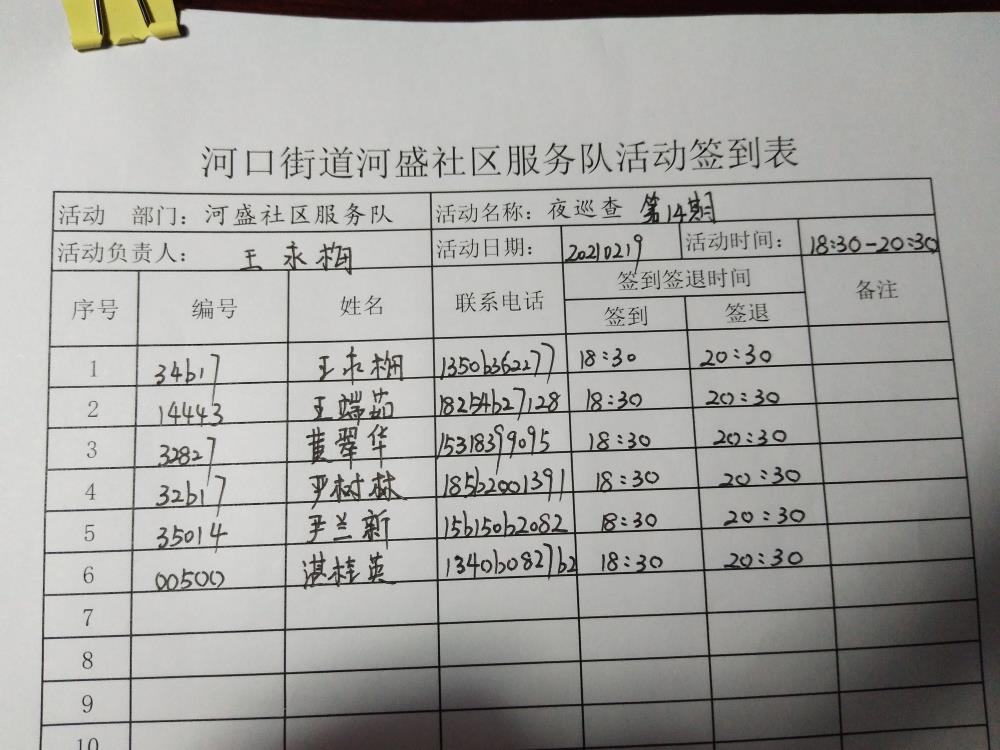 河口街道河盛社区服务队活动签到表
活动 部门：河盛社区服务队 活动名称：夜巡查 第14期
活动负责人： 王永梅 活动日期： 20210219 活动时间： 18:30-20:30
序号 编号 姓名 联系电话 签到签退时间 备注
签到 签退
1 34617 王永梅 13506362277 18:30 20:30
2 14443 王端茹 18254627128 18:30 20:30
3 32827 黄翠华 15318399095 18:30 20:30
4 32617 尹树林 185622001391 18:30 20:30
5 35014 尹兰新 15615062082 18:30 20:30
6 00500 湛桂英 13406082762 18:30 20:30
7
8
9
10